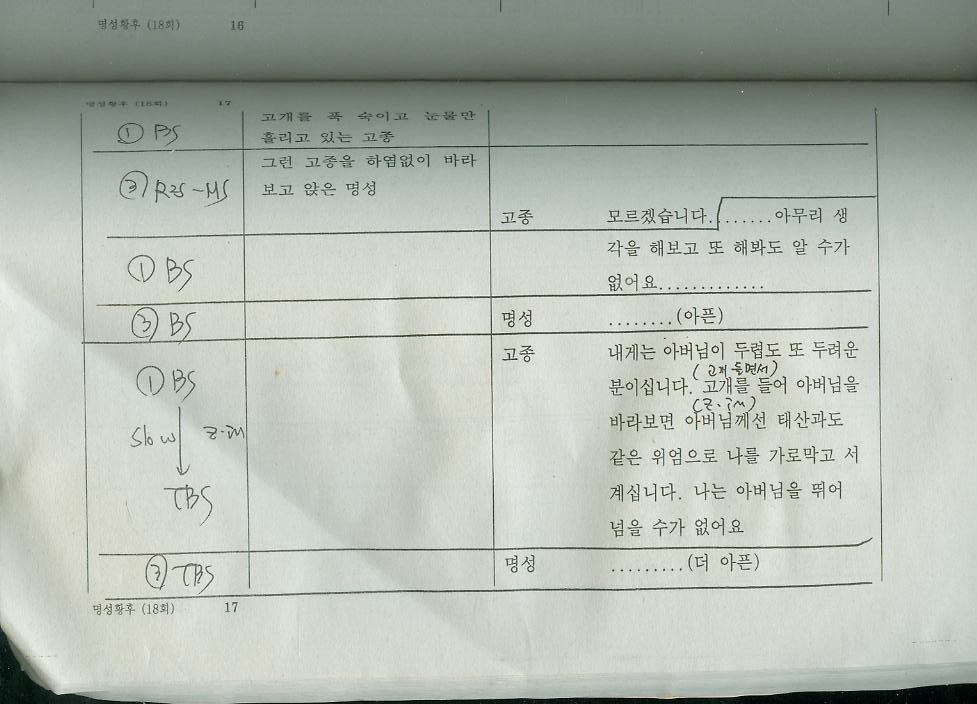 명성황후 (18회) 16
명성황후 (18회) 17
① BS
고개를 푹 숙이고 눈물만
흘리고 있는 고종
③ R2S-MS
그런 고종을 하염없이 바라
보고 앉은 명성
고종 모르겠습니다........아무리 생
각을 해보고 또 해봐도 알 수가
없어요.............
① BS
③ BS
명성 ........(아픈)
고종 내게는 아버님이 두렵도 또 두려운
(고개 들면서)
분이십니다. 고개를 들어 아버님을
(Z.in)
바라보면 아버님께선 태산과도
같은 위엄으로 나를 가로막고 서
계십니다. 나는 아버님을 뛰어
넘을 수가 없어요
① BS
Slow Z-in
TBS
③ TBS
명성 .........(더 아픈)
명성황후 (18회) 17